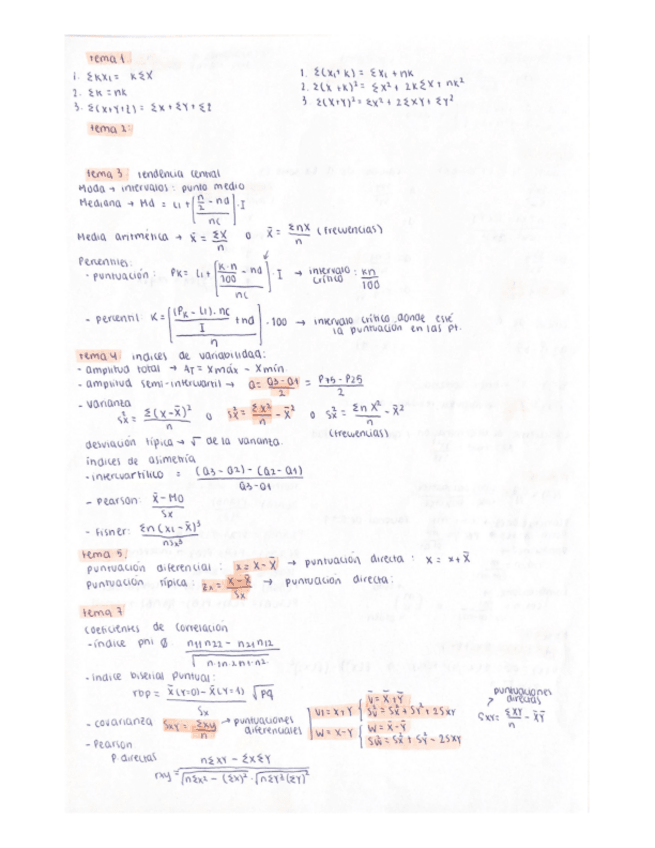 tema 1
1. ΣKXi = KΣX
2. ΣK = nK
3. Σ(X+Y+Z) = ΣX + ΣY + ΣZ
1. Σ(Xi+K) = ΣXi + nK
2. Σ(X+K)² = ΣX² + 2KΣX + nK²
3 Σ(X+Y)² = ΣX² + 2ΣXY + ΣY²
tema 2:
tema 3: tendencia central
Moda → intervalos: punto medio
Mediana → Md = Li + [(n/2 - nd)/nc] · I
Media aritmética → X̄ = ΣX/n o X̄ = ΣnX/n (frecuencias)
Percentiles:
- puntuación: PK = Li + [(K·n/100 - nd)/nc] · I → intervalo crítico: Kn/100
- percentil K = [((PK - Li)·nc/I + nd)/n] · 100 → intervalo crítico donde esté la puntuación en las pt.
tema 4: índices de variabilidad:
- amplitud total → AT = Xmáx - Xmín
- amplitud semi-intercuartil → Q = (Q3-Q1)/2 = (P75 - P25)/2
- varianza
S²x = Σ(X-X̄)²/n o S²x = ΣX²/n - X̄² o S²x = ΣnX²/n - X̄²
(frecuencias)
desviación típica → √ de la varianza.
índices de asimetría
- intercuartílico = ((Q3 - Q2) - (Q2 - Q1))/(Q3-Q1)
- Pearson: (X̄ - Mo)/Sx
- Fisher: Σn(Xi - X̄)³/nSx³
tema 5:
puntuación diferencial: x = X - X̄ → puntuación directa: X = x + X̄
puntuación típica: Zx = (X - X̄)/Sx → puntuación directa:
tema 7
coeficientes de correlación
- índice phi Ø (n11n22 - n21n12)/√
- índice biserial puntual:
rbp = (X̄(Y=0) - X̄(Y=1))/Sx √pq
- covarianza Sxy = Σxy/n → puntuaciones diferenciales
V = X+Y { V̄ = X̄+Ȳ
S²v = S²x + S²y + 2Sxy
W = X-Y { W̄ = X̄-Ȳ
S²w = S²x + S²y - 2Sxy
puntuaciones directas
Sxy = ΣXY/n - X̄Ȳ
- Pearson
P directas
rxy = (nΣXY - ΣXΣY)/(√nΣX² - (ΣX)² · √nΣY²(ΣY)²)